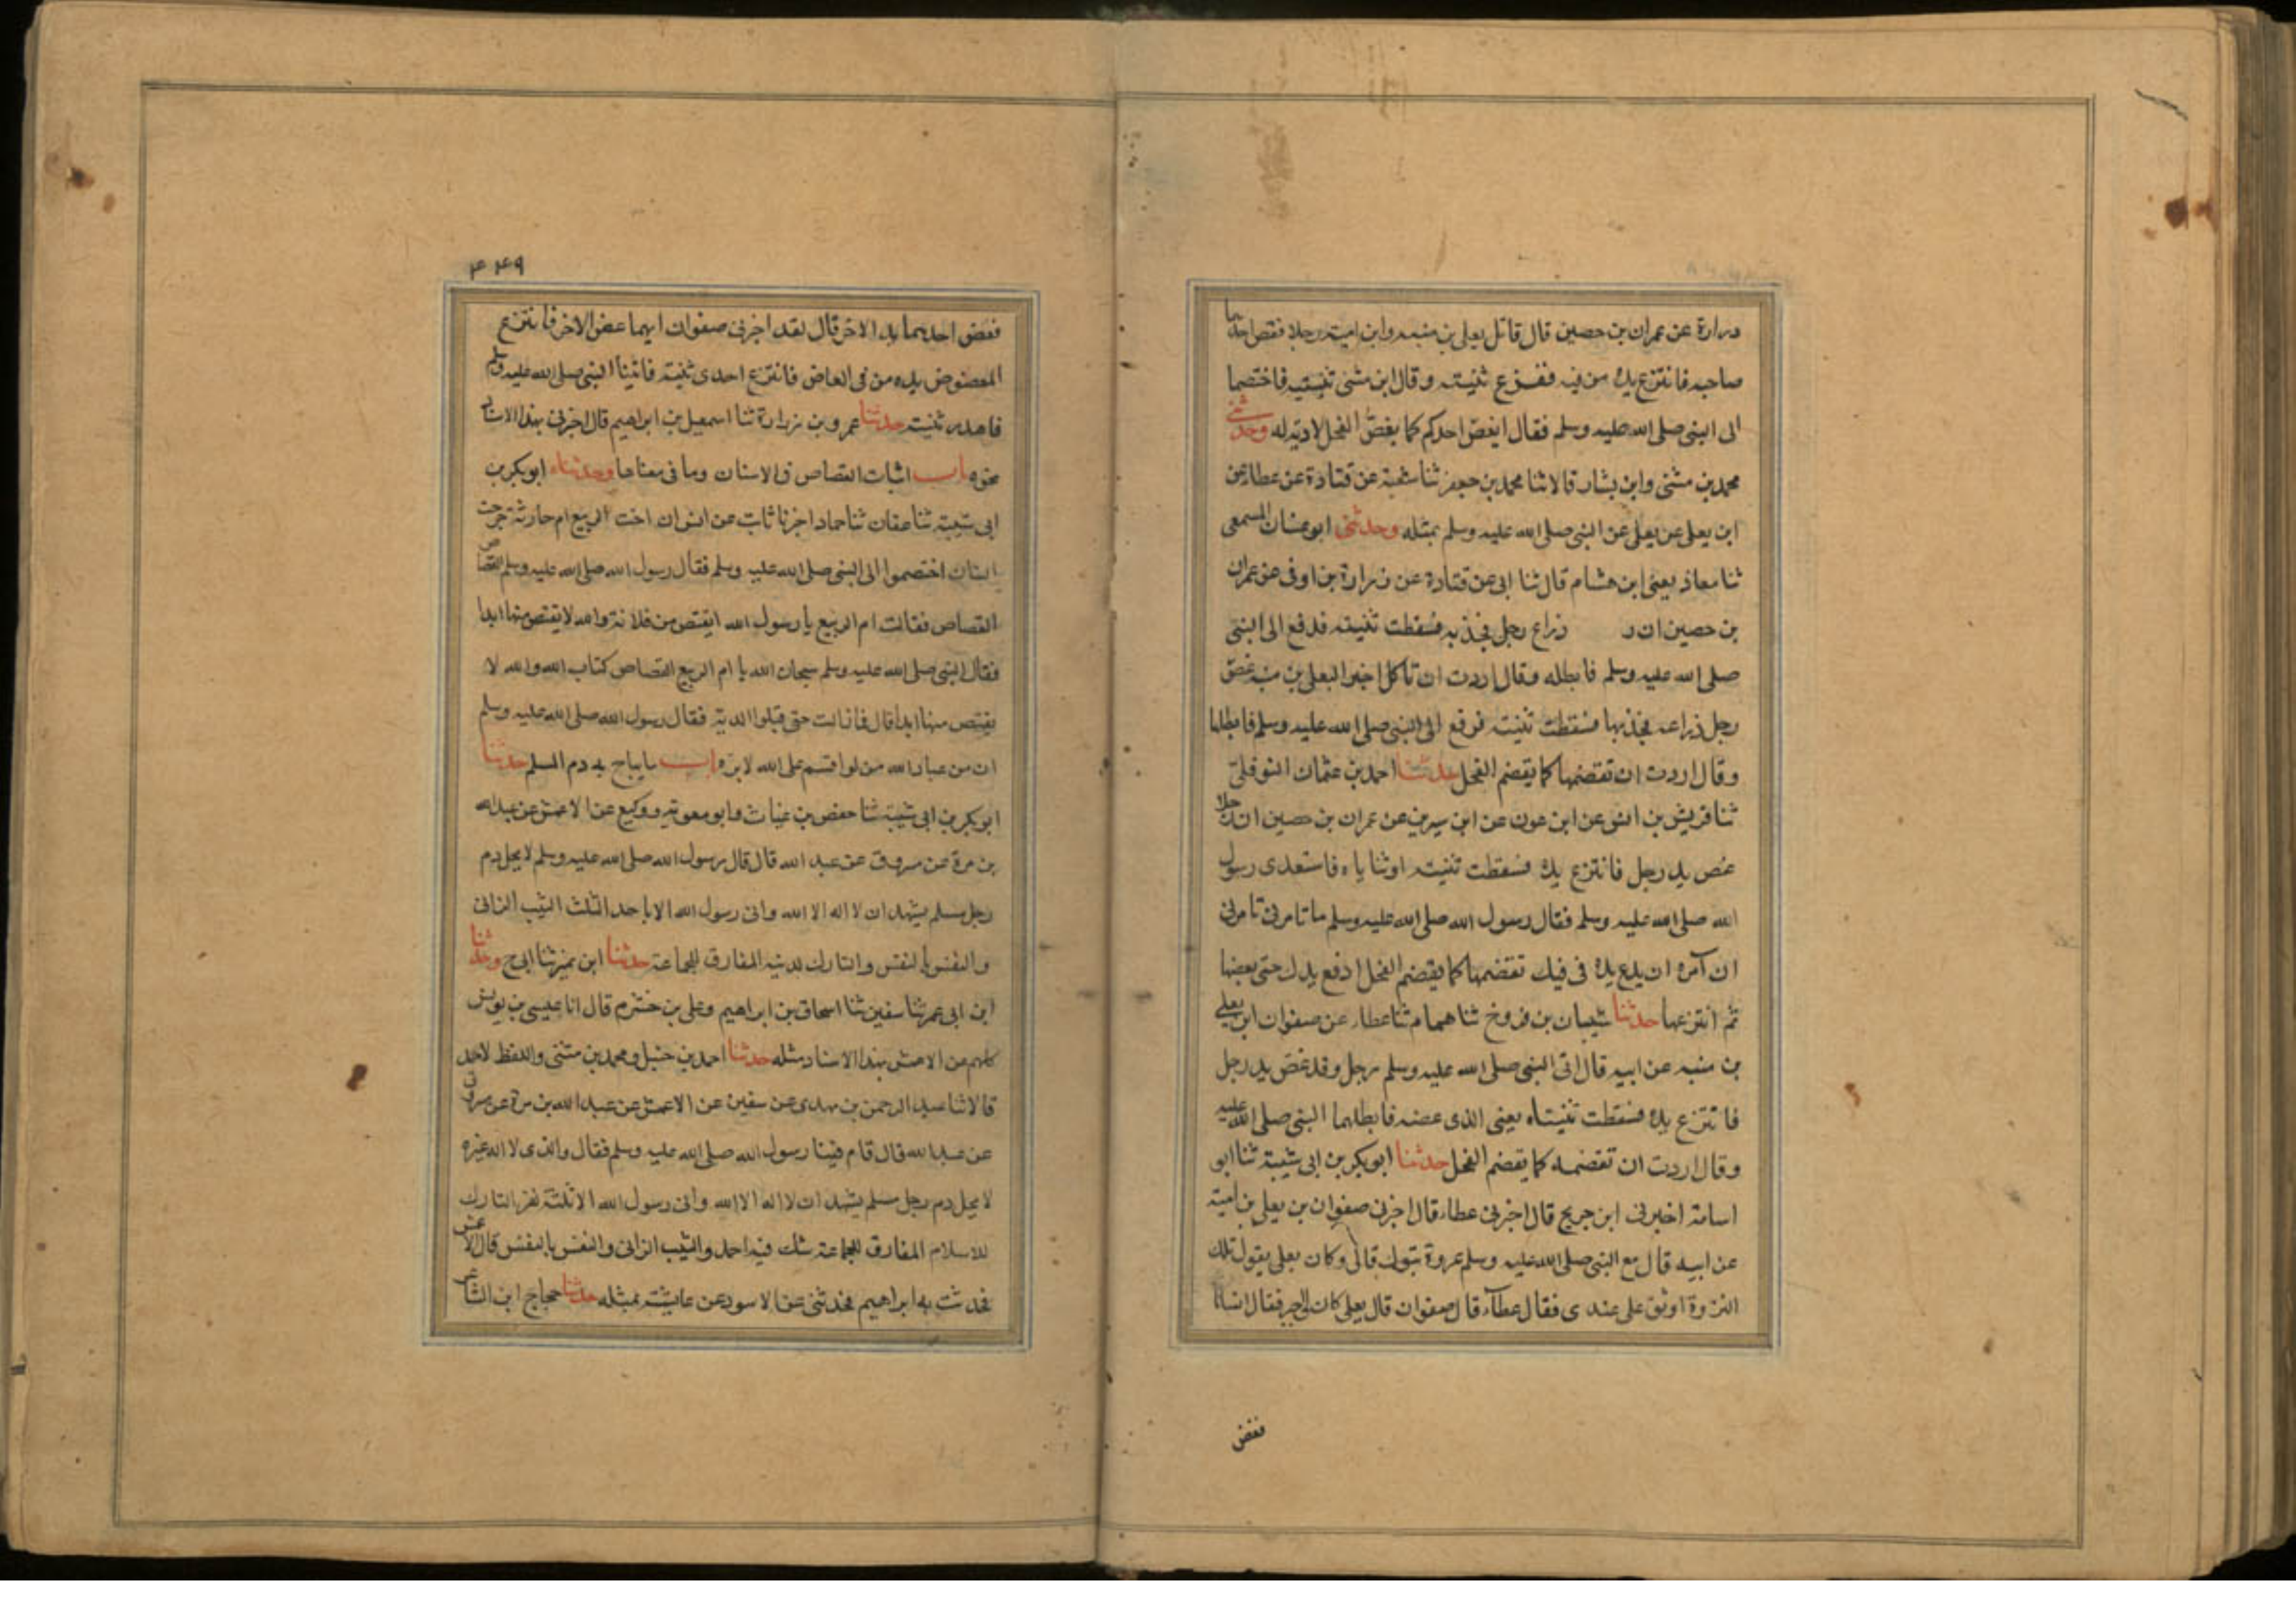 درارة عن عمران بن حصين قال قاتل يعلى بن منبه وابن امية رجلا فعض احدهما
صاحبه فانتزع يده من فيه ففنزع ثنيته وقال ابن مثنى ثنيتيه فاختصما
الى النبي صلى الله عليه وسلم فقال ايعض احدكم كما يعض الفحل لا دية له وحدثني
محمد بن مثنى وابن بشار قالا ثنا محمد بن جعفر ثنا شعبة عن قتادة عن عطا عن
ابن يعلى عن يعلى عن النبي صلى الله عليه وسلم بمثله وحدثني ابو غسان المسمعي
ثنا معاذ يعني ابن هشام قال ثنا ابي عن قتادة عن زرارة بن اوفى عن عمران
بن حصين ان ر ذراع رجل فجذبه فسقطت ثنيته فدفع الى النبي
صلى الله عليه وسلم فابطله وقال اردت ان تاكل اجير اليعلى بن منبه عض
رجل ذراعه فجذبها فسقطت ثنيته فرفع الى النبي صلى الله عليه وسلم فابطلها
وقال اردت ان تقضمها كما يقضم الفحل حدثنا احمد بن عثمان النوفلي
ثنا قريش بن انس عن ابن عون عن ابن سيرين عن عمران بن حصين ان رجلا
عض يد رجل فانتزع يده فسقطت ثنيته او ثناياه فاستعدى رسول
الله صلى الله عليه وسلم فقال رسول الله صلى الله عليه وسلم ما تامرني تامرني
ان آمره ان يدع يده في فيك تقضمها كما يقضم الفحل ادفع يدك حتى يعضها
ثم انتزعها حدثنا شيبان بن فروخ ثنا همام ثنا عطاء عن صفوان ابن يعلى
بن منبه عن ابيه قال اتى النبي صلى الله عليه وسلم رجل وقد عض يد رجل
فانتزع يده فسقطت ثنيتاه يعني الذي عضه فابطلهما النبي صلى الله عليه
وقال اردت ان تقضمه كما يقضم الفحل حدثنا ابو بكر بن ابي شيبة ثنا ابو
اسامة اخبرني ابن جريج قال اخبرني عطاء قال اخبرني صفوان بن يعلى بن امية
عن ابيه قال مع النبي صلى الله عليه وسلم عروة تبوك قال وكان يعلى يقول تلك
الغزوة اوثق على عندي فقال عطاء قال صفوان قال يعلى كان لي اجير فقال انسانا
فعض
٤٤٩
فعض احدهما يد الاخر قال لقد اخبرني صفوان ايهما عض الاخر فانتزع
المعضوض يده من في العاض فانتزع احدى ثنيته فاتينا النبي صلى الله عليه وسلم
فاهدر ثنيته حدثنا عمرو بن زرارة ثنا اسمعيل بن ابراهيم قال اخبرني بهذا الاسناد
نحوه باب اثبات القصاص في الاسنان وما في معناها وحدثناه ابو بكر بن
ابي شيبة ثنا عفان ثنا حماد اخبرنا ثابت عن انس ان اخت الربيع ام حارثة جرحت
انسان اختصموا الى النبي صلى الله عليه وسلم فقال رسول الله صلى الله عليه وسلم القصاص
القصاص فقالت ام الربيع يا رسول الله ايقتص من فلانة والله لا يقتص منها ابدا
فقال النبي صلى الله عليه وسلم سبحان الله يا ام الربيع القصاص كتاب الله والله لا
يقتص منها ابدا قال فما زالت حتى قبلوا الدية فقال رسول الله صلى الله عليه وسلم
ان من عباد الله من لو اقسم على الله لابره باب ما يباح به دم المسلم حدثنا
ابو بكر بن ابي شيبة ثنا حفص بن غياث وابو معوية ووكيع عن الاعمش عن عبد الله
بن مرة عن مسروق عن عبد الله قال قال رسول الله صلى الله عليه وسلم لا يحل دم
رجل مسلم يشهد ان لا اله الا الله واني رسول الله الا باحد الثلث الثيب الزاني
والنفس بالنفس والتارك لدينه المفارق للجماعة حدثنا ابن نمير ثنا ابي ح وحدثنا
ابن ابي عمر ثنا سفين ثنا اسحاق بن ابراهيم وعلي بن خشرم قال انا عيسى بن يونس
كلهم عن الاعمش بهذا الاسناد مثله حدثنا احمد بن حنبل ومحمد بن مثنى واللفظ لاحمد
قالا ثنا عبد الرحمن بن مهدي عن سفين عن الاعمش عن عبد الله بن مرة عن مسروق
عن عبد الله قال قام فينا رسول الله صلى الله عليه وسلم فقال والذي لا اله غيره
لا يحل دم رجل مسلم يشهد ان لا اله الا الله واني رسول الله الا ثلثة نفر التارك
للاسلام المفارق للجماعة شك فيه احمد والثيب الزاني والنفس بالنفس قال الاعمش
فحدثت به ابراهيم فحدثني عن الاسود عن عايشة بمثله حدثنا حجاج ابن الشاعر